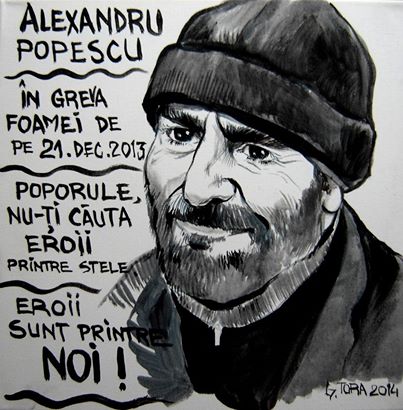 ALEXANDRU
POPESCU
ÎN GREVA
FOAMEI DE
PE 21.DEC.2013
POPORULE,
NU-ȚI CĂUTA
EROII
PRINTRE STELE.
EROII
SUNT PRINTRE
NOI!
G. TORA 2014